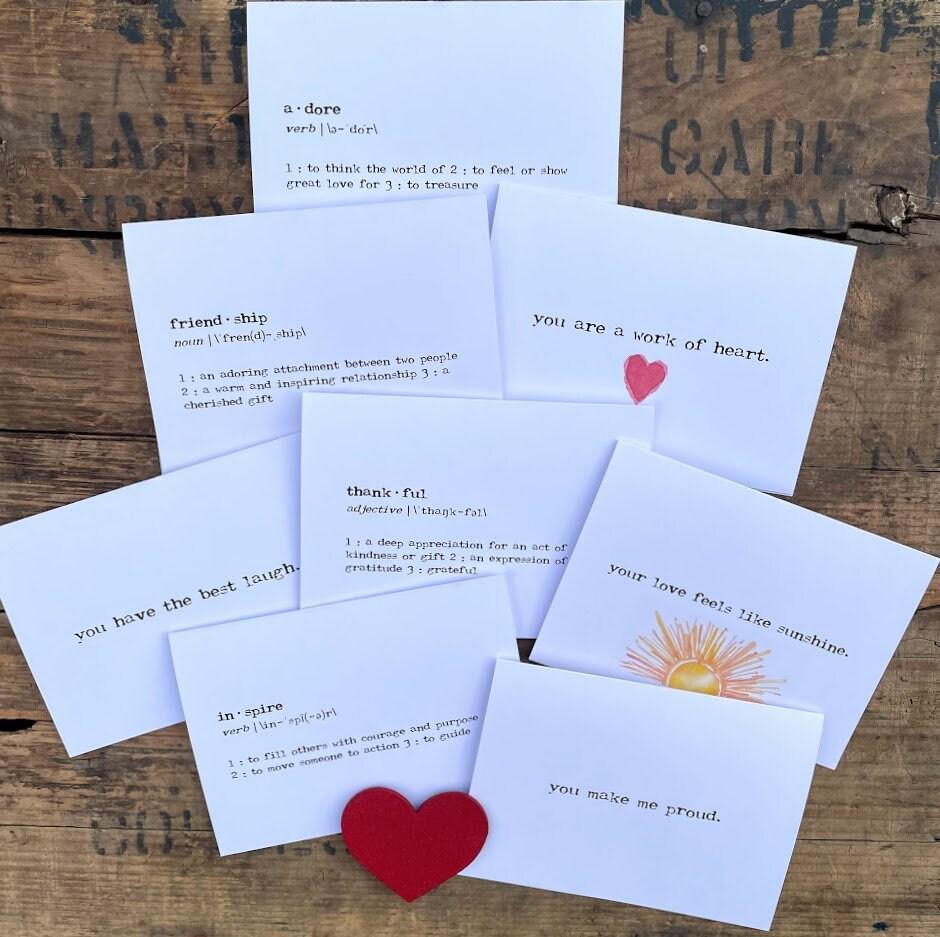 CARE
a·dore
verb | \ə-ˈdȯr\
1 : to think the world of 2 : to feel or show
great love for 3 : to treasure
friend·ship
noun | \ˈfren(d)-ˌship\
1 : an adoring attachment between two people
2 : a warm and inspiring relationship 3 : a
cherished gift
you are a work of heart.
thank·ful
adjective | \ˈthaŋk-fəl\
1 : a deep appreciation for an act of
kindness or gift 2 : an expression of
gratitude 3 : grateful
you have the best laugh.
your love feels like sunshine.
in·spire
verb | \in-ˈspī(-ə)r\
1 : to fill others with courage and purpose
2 : to move someone to action 3 : to guide
you make me proud.